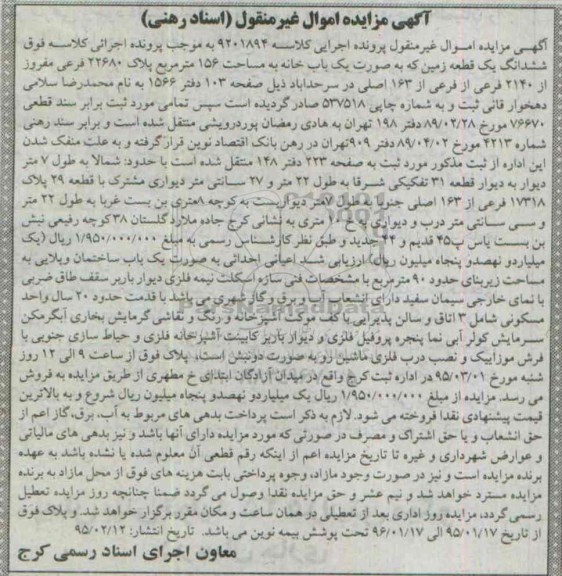 آگهی مزایده اموال غیرمنقول (اسناد رهنی)
آگهی مزایده اموال غیرمنقول پرونده اجرایی کلاسه ۹۲۰۱۸۹۴ به موجب پرونده اجرائی کلاسه فوق
ششدانگ یک قطعه زمین که به صورت یک باب خانه به مساحت ۱۵۶ مترمربع پلاک ۲۲۶۸۰ فرعی مفروز
از ۲۱۴۰ فرعی از فرعی از ۱۶۳ اصلی در سرحداباد ذیل صفحه ۱۰۳ دفتر ۱۵۶۶ به نام محمدرضا سلامی
دهخوار قانی ثبت و به شماره چاپی ۵۳۷۵۱۸ صادر گردیده است سپس تمامی مورد ثبت برابر سند قطعی
۷۶۶۷۰ مورخ ۸۹/۰۲/۲۸ دفتر ۱۹۸ تهران به هادی رمضان پوردرویشی منتقل شده است و برابر سند رهنی
شماره ۴۲۱۳ مورخ ۸۹/۰۴/۰۲ دفتر ۹۰۹ تهران در رهن بانک اقتصاد نوین قرار گرفته و به علت منفک شدن
این اداره از ثبت مذکور مورد ثبت به صفحه ۲۲۳ دفتر ۱۴۸ منتقل شده است با حدود: شمالا به طول ۷ متر
دیوار به دیوار قطعه ۳۱ تفکیکی شرقا به طول ۲۲ متر و ۲۷ سانتی متر دیواری مشترک با قطعه ۲۹ پلاک
۱۷۳۱۸ فرعی از ۱۶۳ اصلی جنوبا به طول ۷ متر دیواریست به کوچه ۸ متری بن بست غربا به طول ۲۲ متر
و سی سانتی متر درب و دیواری به خ ۱۰ متری به نشانی کرج جاده ملارد گلستان ۳۸ کوچه رفیعی نبش
بن بست یاس پ ۴۵ قدیم و ۴۴ جدید و طبق نظر کارشناس رسمی به مبلغ ۱/۹۵۰/۰۰۰/۰۰۰ ریال (یک
میلیاردو نهصدو پنجاه میلیون ریال) ارزیابی شد اعیانی احداثی به صورت یک باب ساختمان ویلایی به
مساحت زیربنای حدود ۹۰ مترمربع با مشخصات فنی سازه اسکلت نیمه فلزی دیوار باربر سقف طاق ضربی
با نمای خارجی سیمان سفید دارای انشعاب آب و برق و گاز شهری می باشد با قدمت حدود ۲۰ سال واحد
مسکونی شامل ۳ اتاق و سالن پذیرایی با کفت موکت آشپزخانه و رنگ و نقاشی گرمایش بخاری آبگرمکن
سرمایش کولر آبی نما پنجره پروفیل فلزی و دیوار باربر کابینت آشپزخانه فلزی و حیاط سازی جنوبی با
فرش موزاییک و نصب درب فلزی ماشین رو به صورت دونبش است. پلاک فوق از ساعت ۹ الی ۱۲ روز
شنبه مورخ ۹۵/۰۳/۰۱ در اداره ثبت کرج واقع در میدان آزادگان ابتدای خ مطهری از طریق مزایده به فروش
می رسد. مزایده از مبلغ ۱/۹۵۰/۰۰۰/۰۰۰ ریال یک میلیاردو نهصدو پنجاه میلیون ریال شروع و به بالاترین
قیمت پیشنهادی نقدا فروخته می شود. لازم به ذکر است پرداخت بدهی های مربوط به آب، برق، گاز اعم از
حق انشعاب و یا حق اشتراک و مصرف در صورتی که مورد مزایده دارای آنها باشد و نیز بدهی های مالیاتی
و عوارض شهرداری و غیره تا تاریخ مزایده اعم از اینکه رقم قطعی آن معلوم شده یا نشده باشد به عهده
برنده مزایده است و نیز در صورت وجود مازاد، وجوه پرداختی بابت هزینه های فوق از محل مازاد به برنده
مزایده مسترد خواهد شد و نیم عشر و حق مزایده نقدا وصول می گردد ضمنا چنانچه روز مزایده تعطیل
رسمی گردد، مزایده روز اداری بعد از تعطیلی در همان ساعت و مکان مقرر برگزار خواهد شد. و پلاک فوق
از تاریخ ۹۵/۰۱/۱۷ الی ۹۶/۰۱/۱۷ تحت پوشش بیمه نوین می باشد. تاریخ انتشار: ۹۵/۰۲/۱۲
معاون اجرای اسناد رسمی کرج